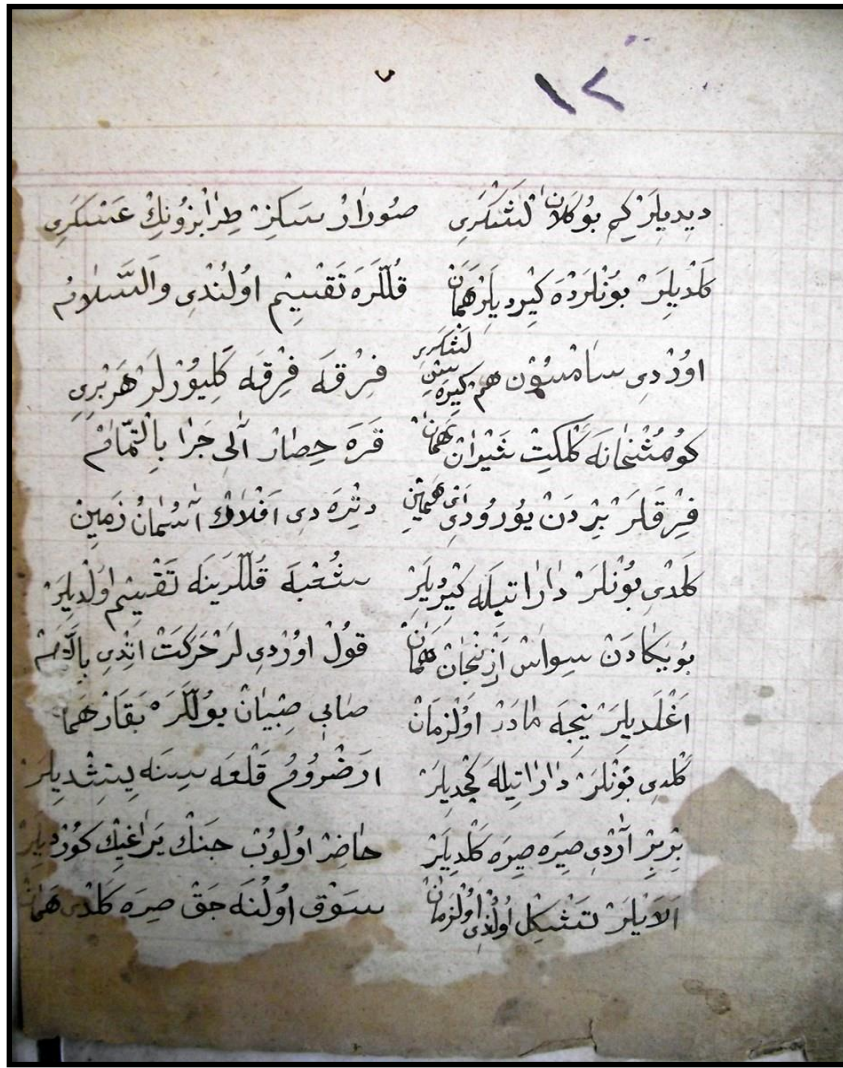 ١٢
ديديلر كم بو كلان لشكرى صورار سكز طرابزونك عسكرى
كلديلر بونلرده كيرديلر همان قللره تقسيم اولندى والسلام
اوردى سامسون هم كيره سين لشكرى فرقه فرقه كليورلر هر برى
كومشخانه كلكت شيران همان قره حصار آلى جرا بالتمام
فرقلر بردن يورودى انى همين دتره دى افلاك آسمان زمين
كلدى بونلر داراتيله كيرديلر شعبه قللرينه تقسيم اولديلر
بو يكادن سيواس ارزنجان همان قول اوردى لر حركت اتدى
اغلديلر نيجه مادر اول زمان صابى صبيان يوللره بقار هما
كلدى بونلر داراتيله كچديلر ارضروم قلعه سينه يتشديلر
بربر آردى صيره صيره كلديلر حاضر اولوب جنك يراغيك كورديلر
الايلر تشكل اولدى اول زمان سوق اولنه جق صره كلدى همان